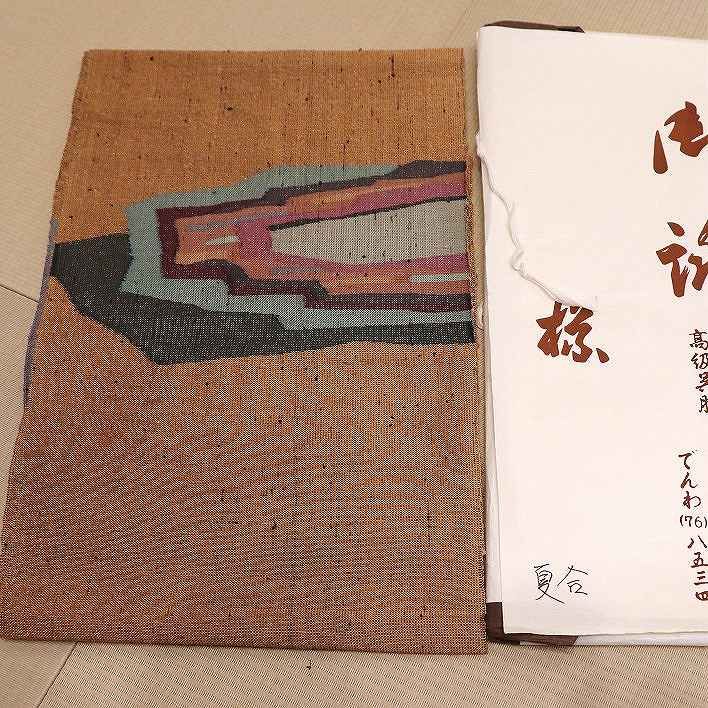 高級呉服
でんわ(76)八五三四
様
夏合